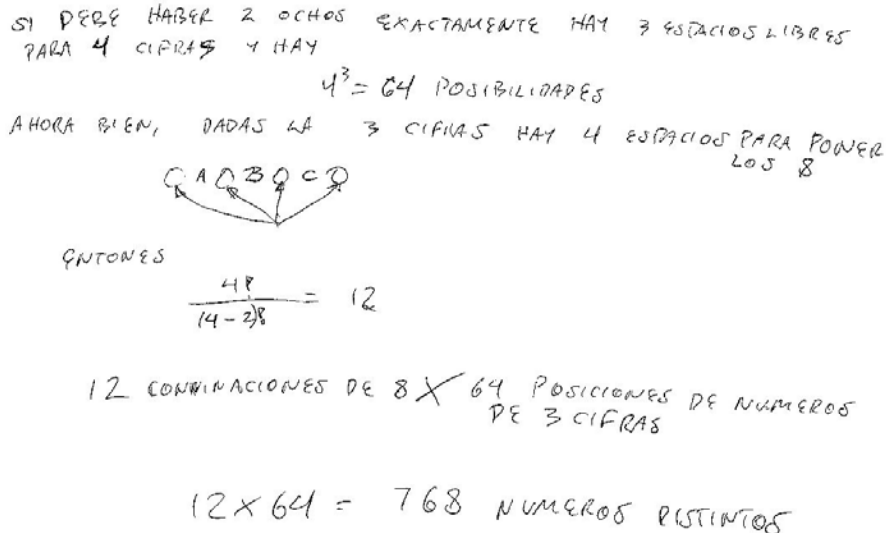 SI DEBE HABER 2 OCHOS EXACTAMENTE HAY 3 ESTACIOS LIBRES
PARA 4 CIFRAS Y HAY
4³ = 64 POSIBILIDADES
AHORA BIEN, DADAS LA 3 CIFRAS HAY 4 ESPACIOS PARA PONER
LOS 8
O A O B O C O
ENTONES
4!
(4-2)! = 12
12 COMBINACIONES DE 8 X 64 POSICIONES DE NUMEROS
DE 3 CIFRAS
12 X 64 = 768 NUMEROS DISTINTOS